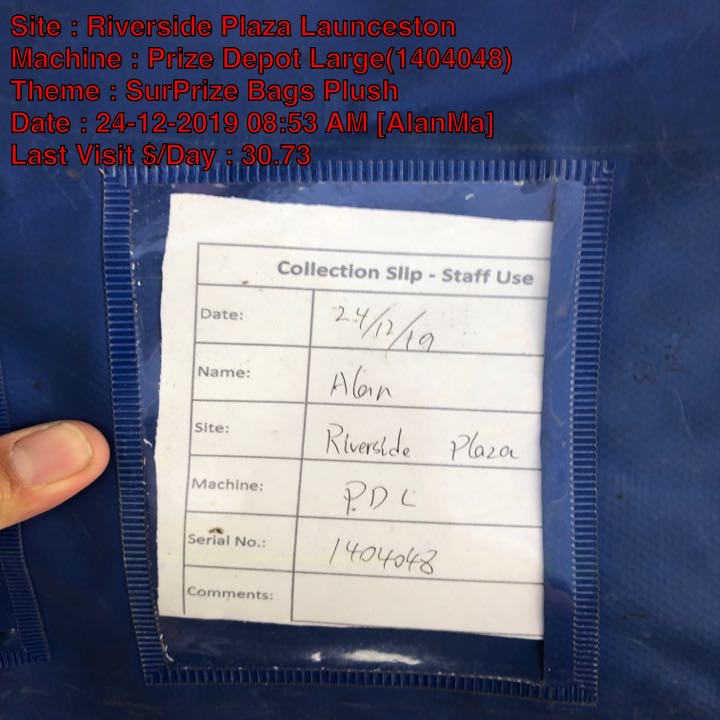 Site : Riverside Plaza Launceston
Machine : Prize Depot Large(1404048)
Theme : SurPrize Bags Plush
Date : 24-12-2019 08:53 AM [AlanMa]
Last Visit $/Day : 30.73
Collection Slip - Staff Use
Date: 24/12/19
Name: Alan
Site: Riverside Plaza
Machine: P.D L
Serial No.: 1404048
Comments: